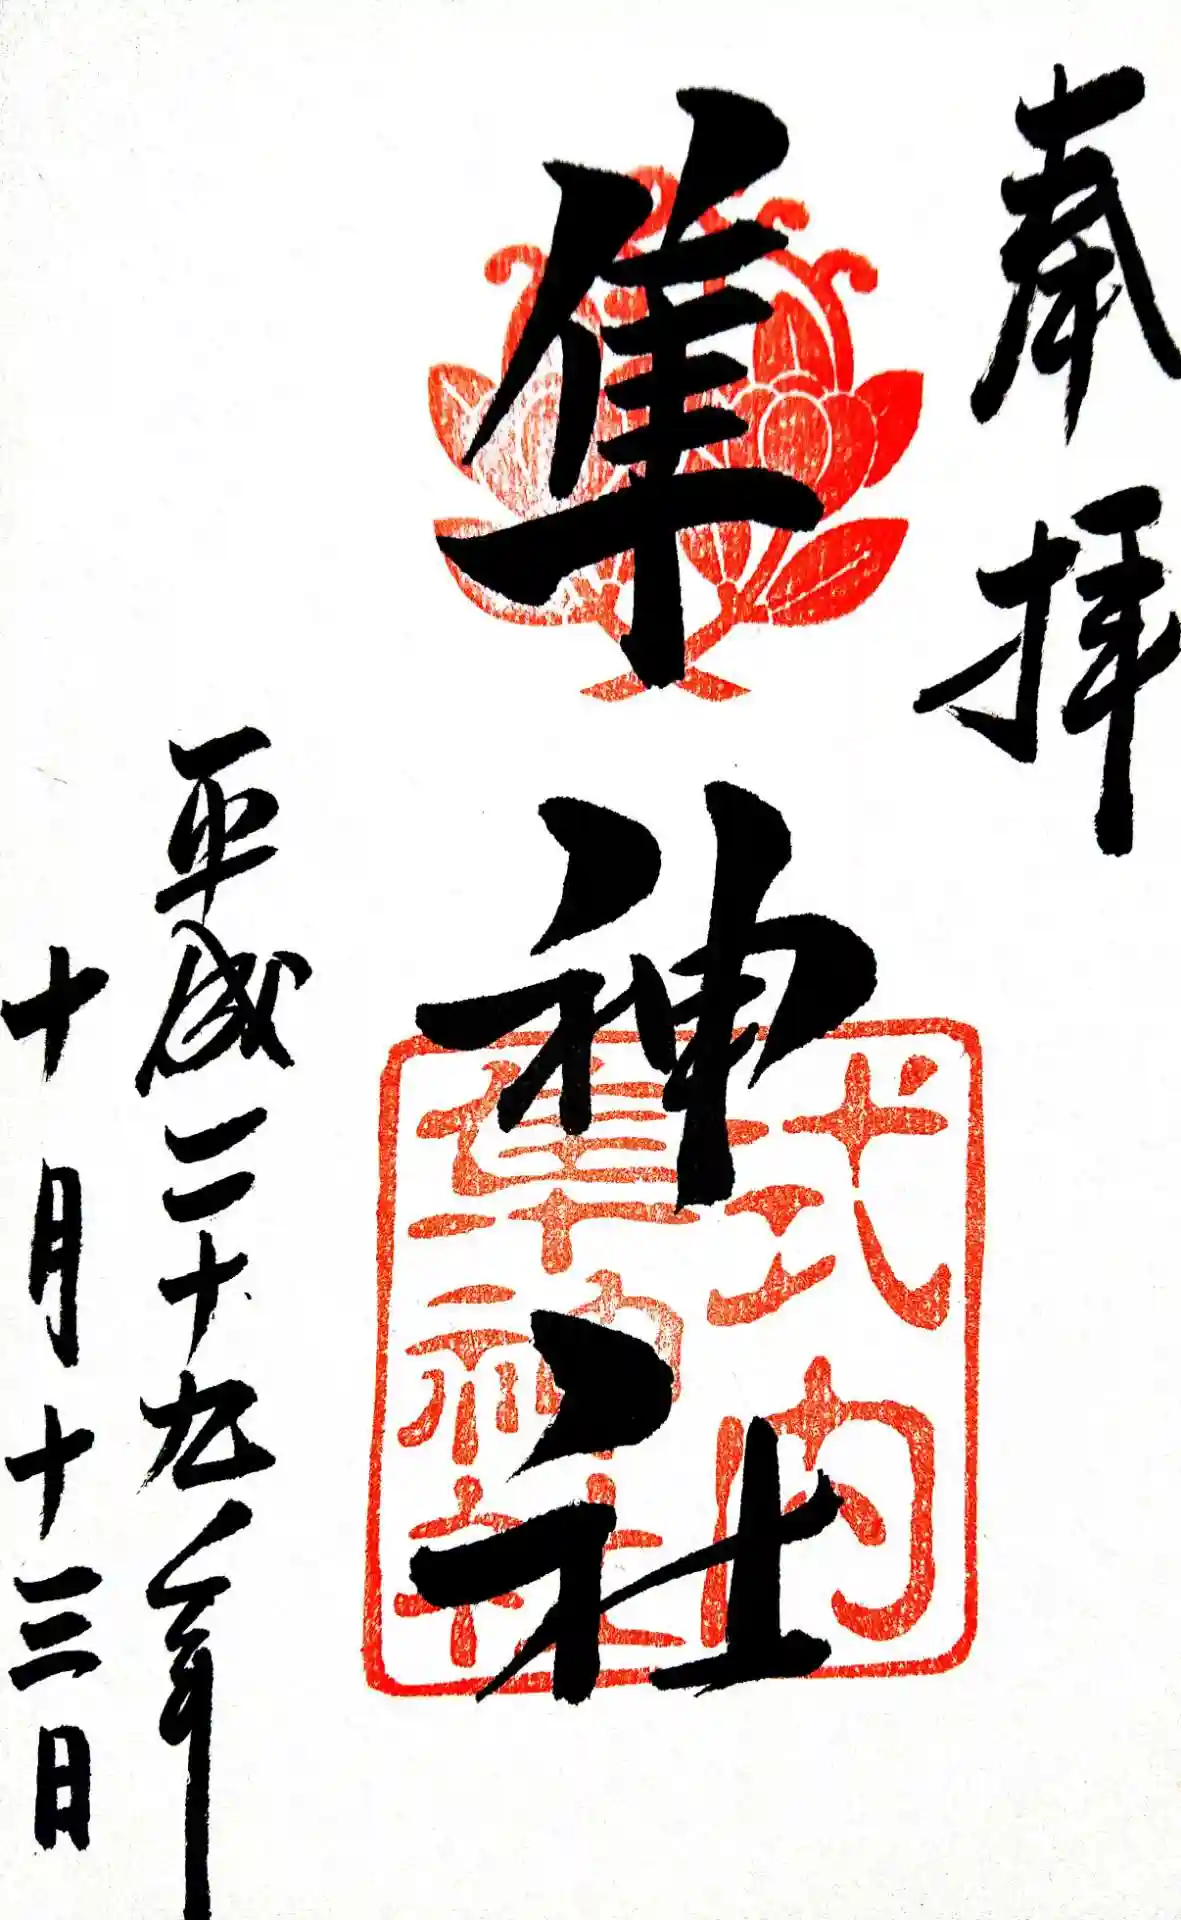 奉拝
隼神社
式内
隼神社
平成二十九年
十月十三日